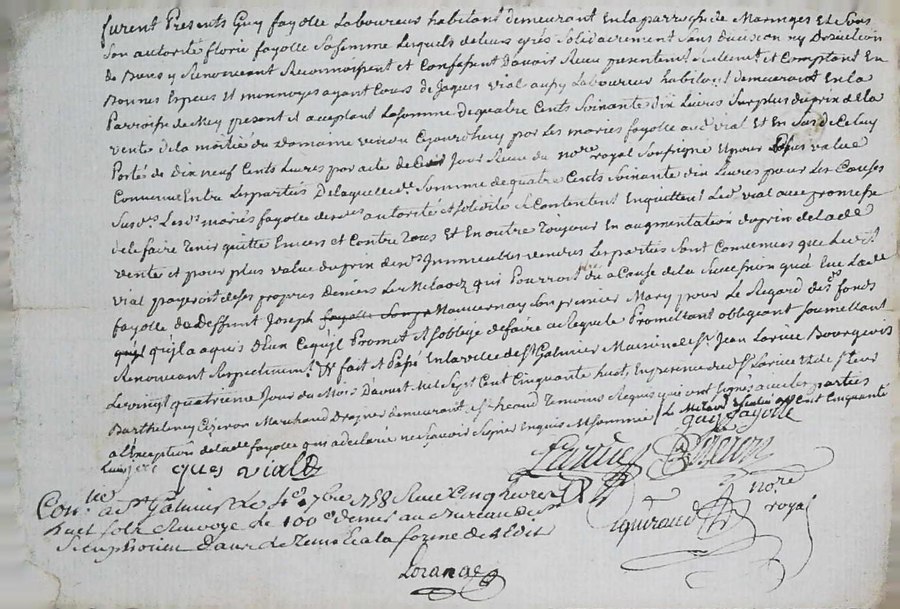 furent Presents Guy fayolle Laboureur habitant demeurant En la parroisse de Maringes Et sous
son autorité florie fayolle sa femme Lesquels de leurs grés solidairement sans division ny Discution
de Biens y Renonceant Reconnoissent et Confessent D'avoir Receu presentement Reellement et Comptant En
Bonnes Especes Et monnoyes ayant Cours de Jaques vial aussy Laboureur habitant demeurant En la
Parroisse de present et acceptant La somme de quatre Cents soixante dix Livres surplus du prix de la
vente de la moitié du Domaine vendu Cejourdhuy par Les mariés fayolle aud. vial Et En sus de Celuy
Portés de Dix neuf Cents Livres par acte de Jour Receu du nore royal soussigné Et pour plus value
Convenue Entre Les parties De laquelle de. somme de quatre Cents soixante dix Livres pour Les Causes
Susd.es Lesd.s mariés fayolle desd.es autorité et solidité se Contentent En quittent Led. vial avec promesse
de le faire Tenir quitte Envers et Contre Tous Et En outre Toujour En augmentation du prix de lade.
vente et pour plus value du prix desd.s Immeubles vendus Les parties sont Convenues que Led.
vial payeroit de ses propres deniers Les qui Pourront du a Cause de la Succession qu'a Eue Lade.
fayolle de Deffunt Joseph son premier Mary pour Le Regard des fonds
quil a aquis d'Eux Ce qu'il Promet Et s'oblige de faire Promettant obligeant soumettant
Renonceant Respectivem.t &c fait Et Passé En la ville de St Galmier Maison de Sr Jean Larive Bourgeois
Le vingt quatrieme Jour du Mois D'aoust Mil Sept Cent Cinquante huit, En presence dud. Sr Larive Et de Sieur
Barthelemy Marchand Drapier demeurant Temoins Requis qui ont signés avec les parties
a L'exception de lade. fayolle qui a declaré ne sçavoir signer Enquise Et sommée
guy fayolle
ques vial
Larive
nore
royal
Con.lle a St Galmier Le 4e 7bre 1758 Receu Cinq livres
huit sols Renvoyé Le 100e denier au Bureau de St
Simphorien Dans Le Tems Et a la forme de L'Edit
Lorange